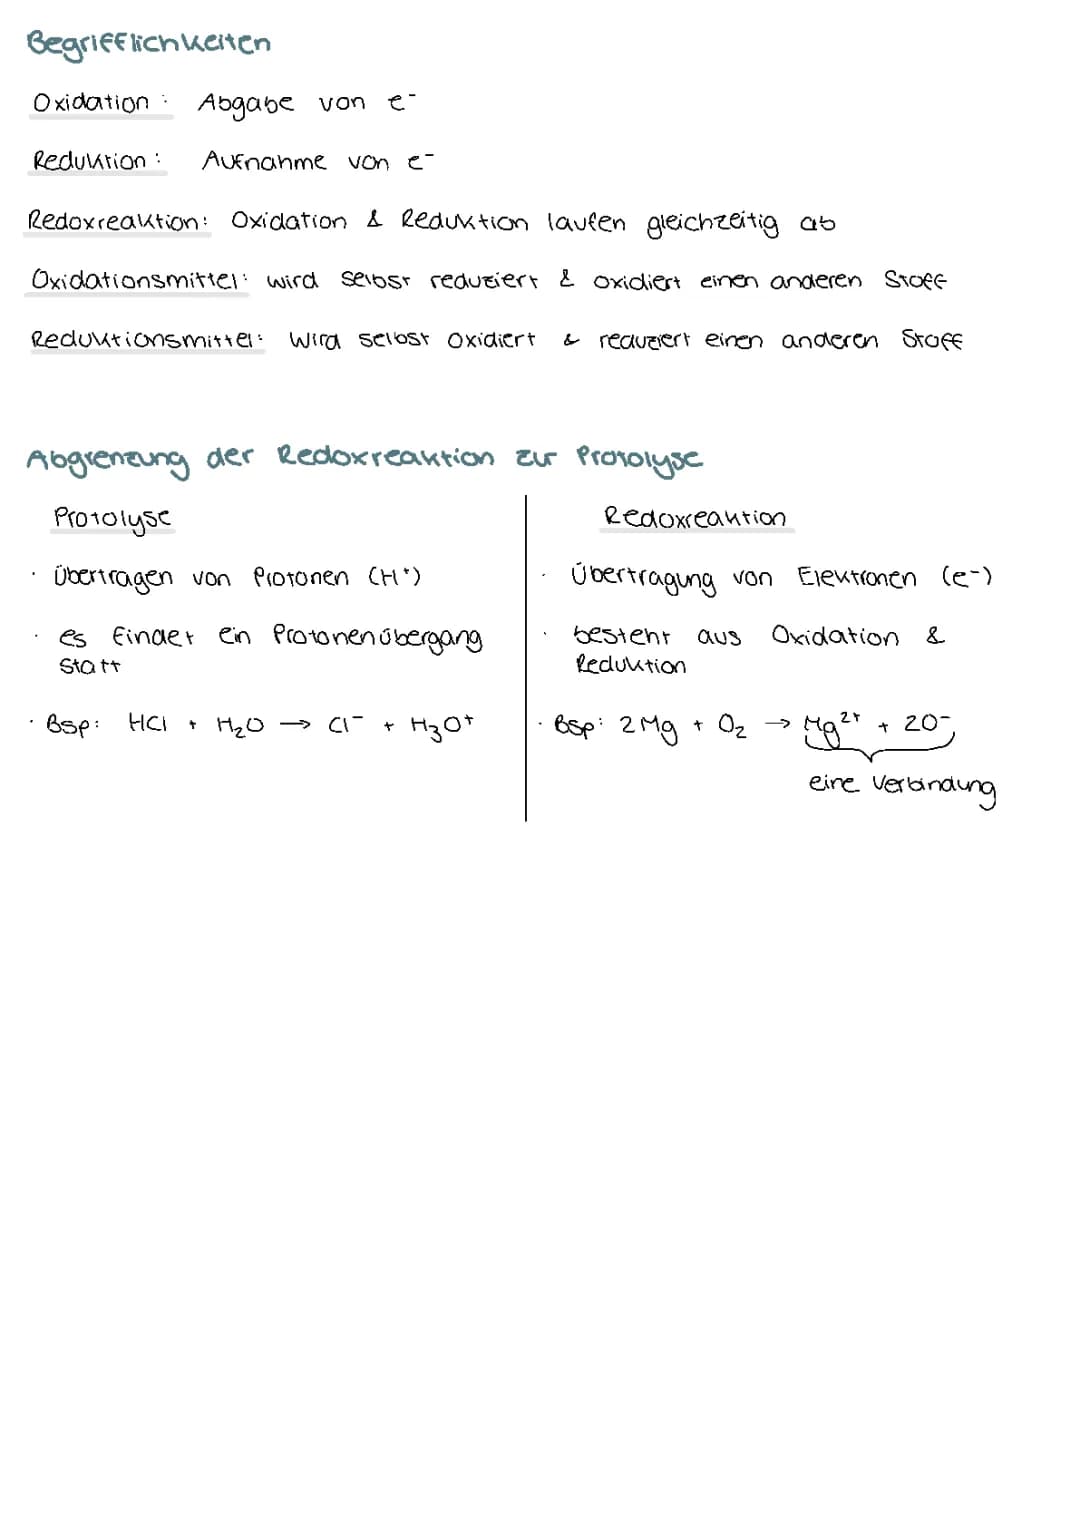 Begrifflichkeiten
Oxidation: Abgabe von e⁻
Reduktion: Aufnahme von e⁻
Redoxreaktion: Oxidation & Reduktion laufen gleichzeitig ab
Oxidationsmittel: wird selbst reduziert & oxidiert einen anderen Stoff
Reduktionsmittel: wird selbst oxidiert & reduziert einen anderen Stoff
Abgrenzung der Redoxreaktion zur Protolyse
Protolyse
· Übertragen von Protonen (H⁺)
· es findet ein Protonenübergang
statt
· Bsp: HCl + H₂O → Cl⁻ + H₃O⁺
Redoxreaktion
· Übertragung von Elektronen (e⁻)
· besteht aus Oxidation &
Reduktion
· Bsp: 2Mg + O₂ → Mg²⁺ + 2O⁻
eine Verbindung